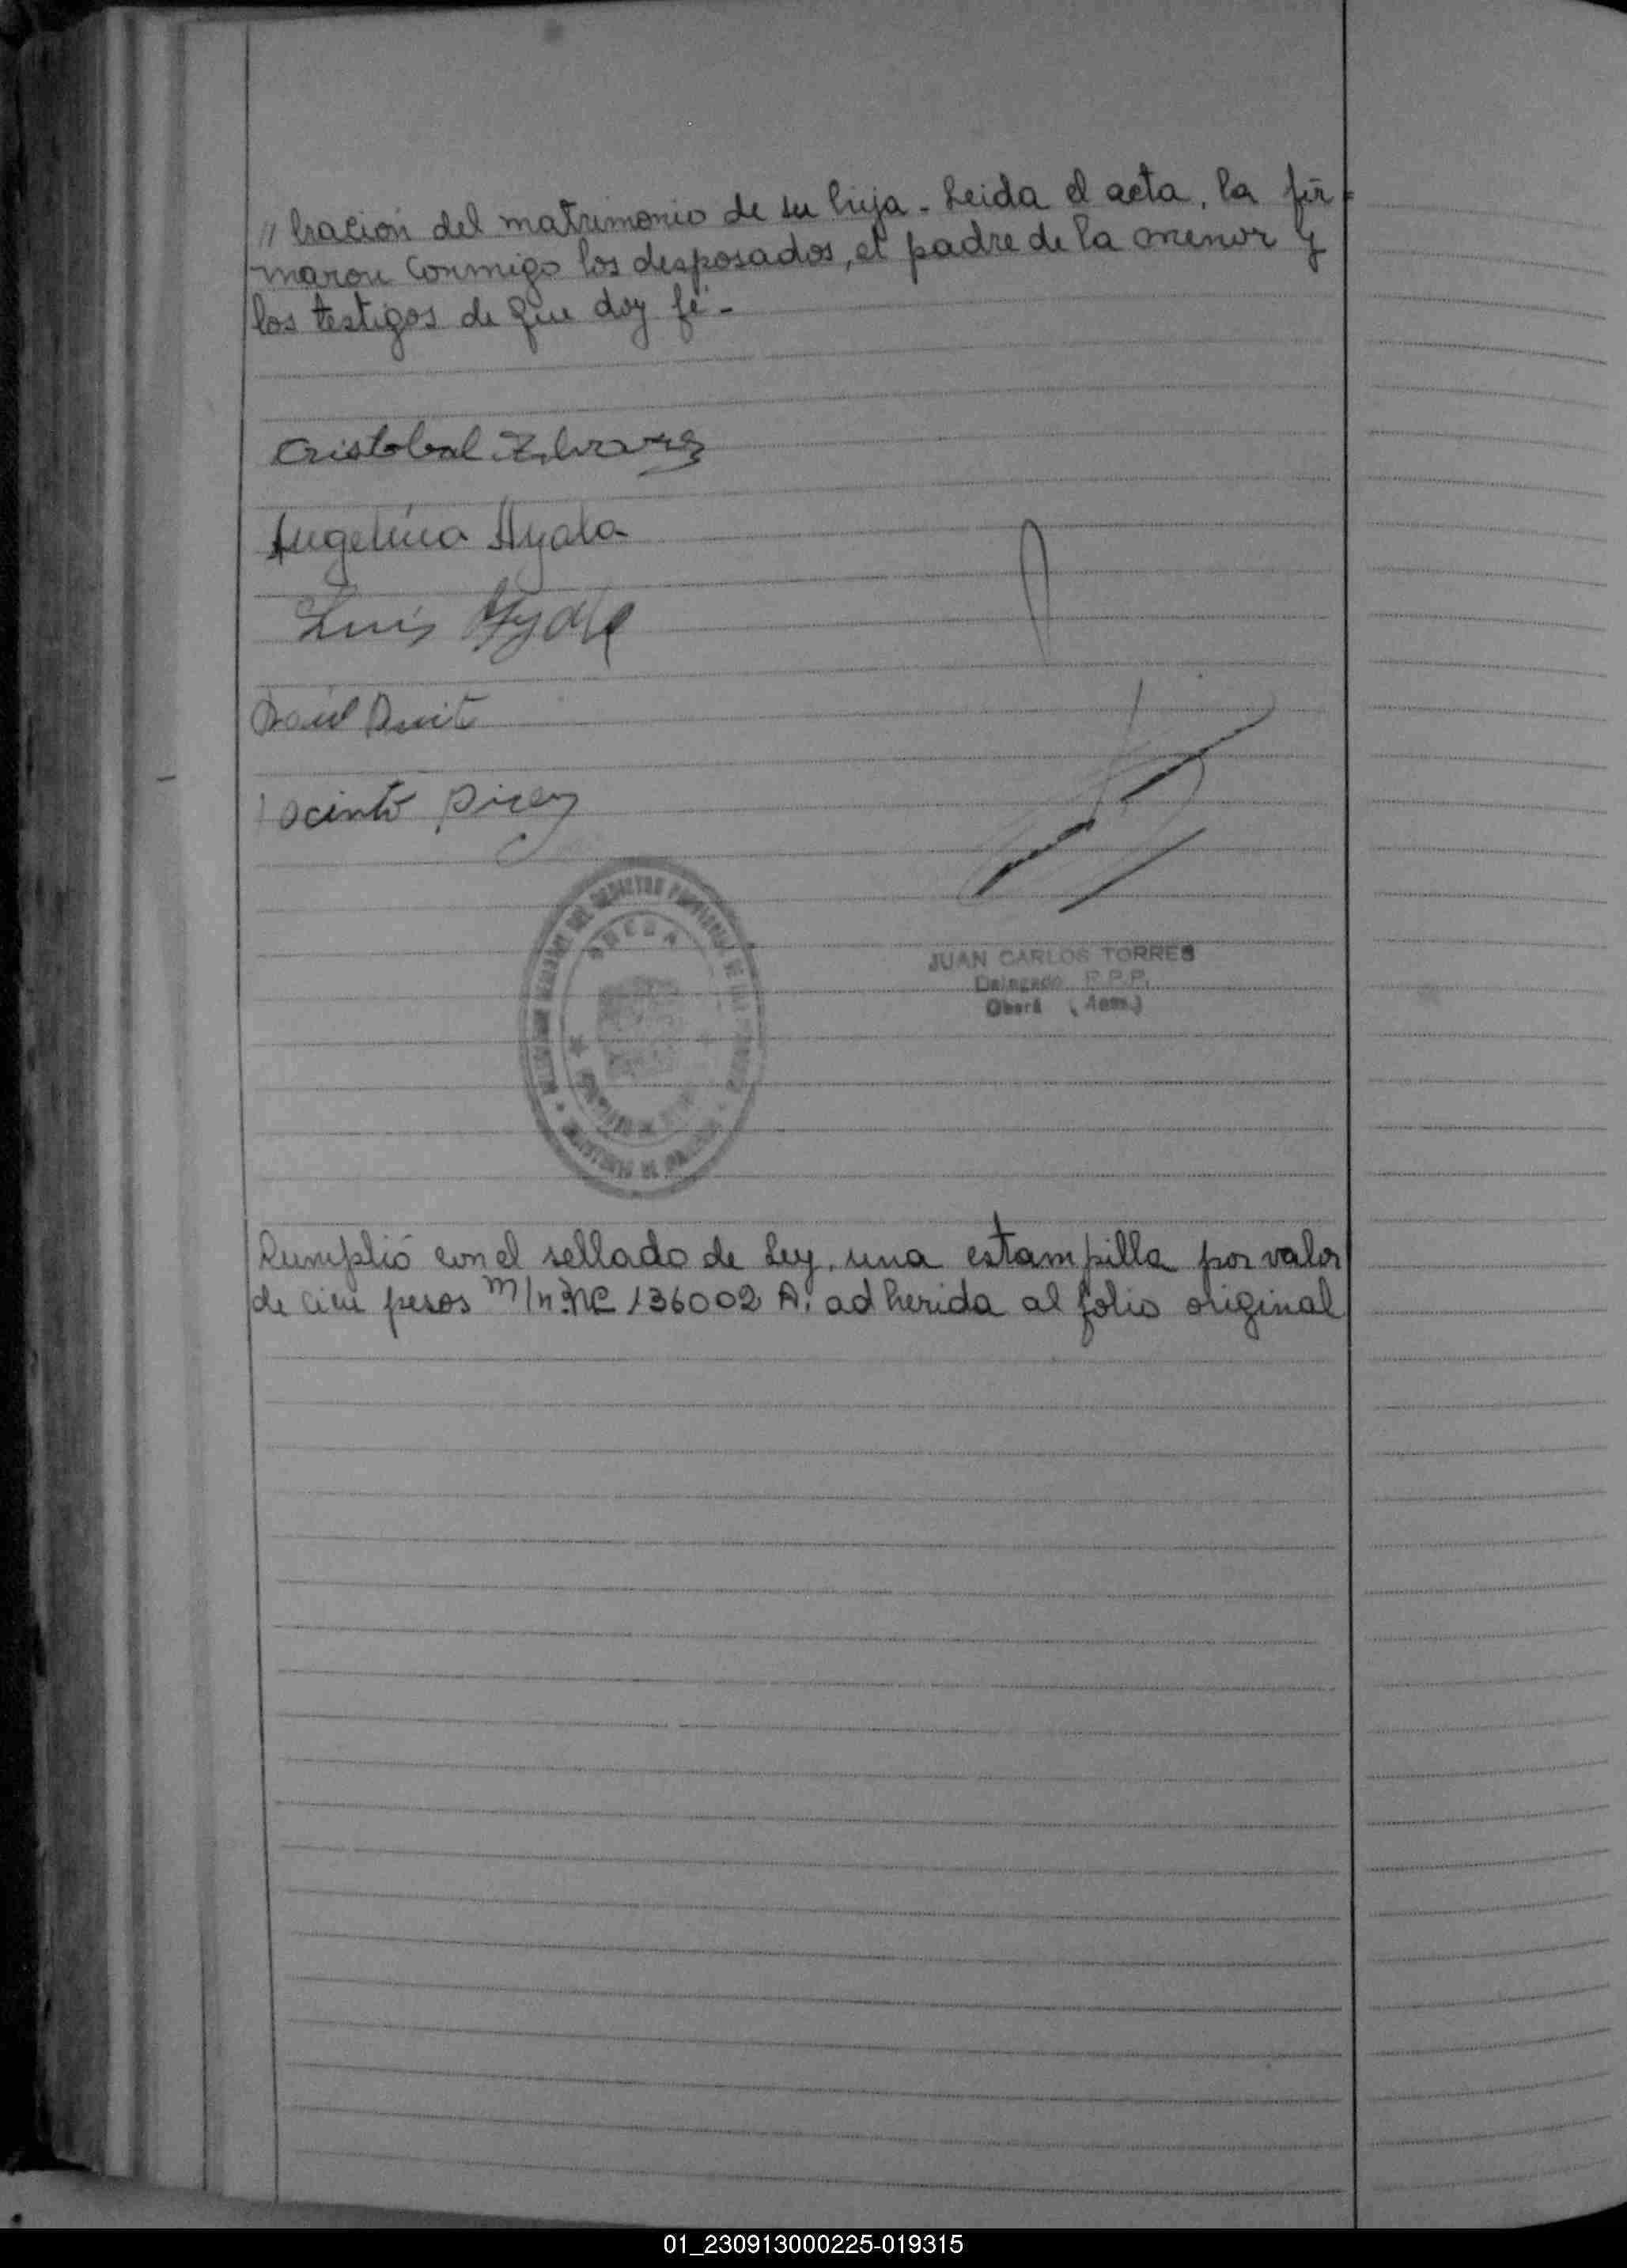 // bración del matrimonio de su hija - Leida el acta, la fir=
maron conmigo los desposados, el padre de la menor y
los testigos de que doy fé -
Cristobal
Angelina Ayala
Luis Ayala
Raúl
Jacinto
OBERA
JUAN CARLOS TORRES
Delegado R.P.P.
Oberá
Cumplió con el sellado de Ley, una estampilla por valor
de cien pesos m/n. Nº 136002 A, adherida al folio original
01_230913000225-019315